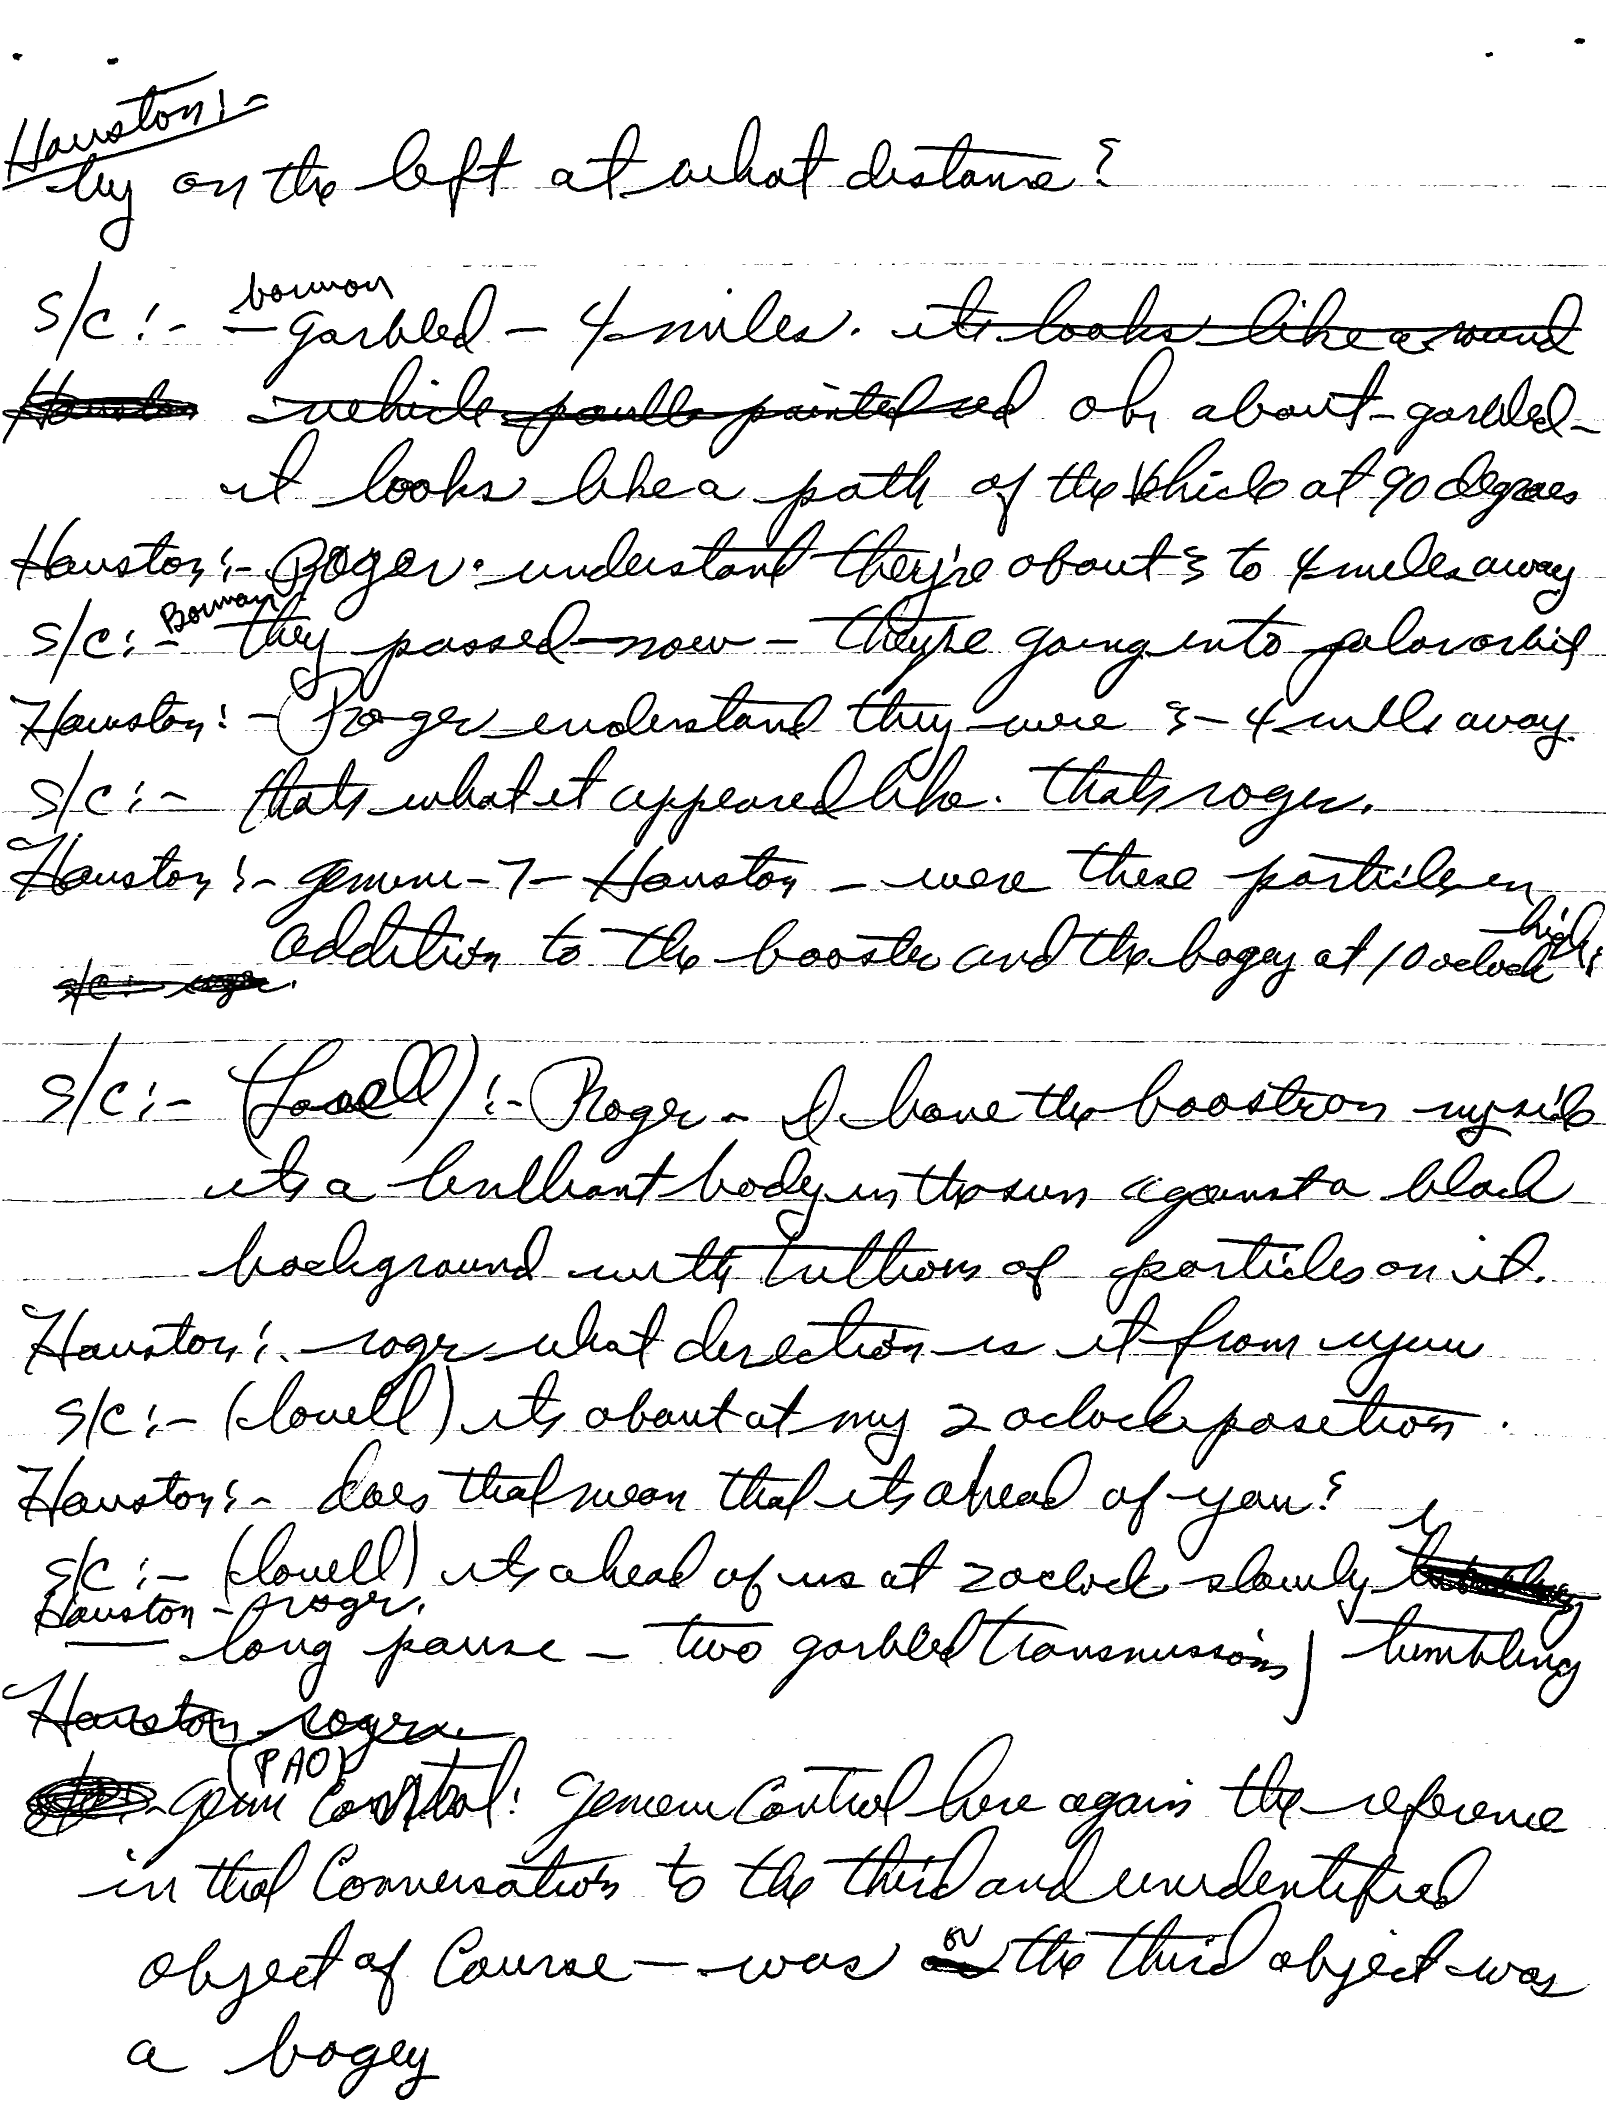 Houston:-
try on the left at what distance?
borman
S/C:- — garbled — 4 miles. it looks like a round
Houston vehicle painted red oh, about - garbled -
it looks like a path of the vehicle at 90 degrees
Houston:- Roger. understand they're about 3 to 4 miles away
S/C:- Borman they passed now - they're going into polar orbit
Houston:- Roger understand they were 3-4 miles away.
S/C:- thats what it appeared like. Thats roger.
Houston:- gemini-7- Houston - were these particles in
addition to the booster and the bogey at 10 oclock high?
S/C:- roger.
S/C:- (Lovell):- Roger - I have the booster on my side
its a brilliant body in the sun against a black
background with trillions of particles on it.
Houston:- roger what direction is it from you
S/C:- (lovell) its about at my 2 oclock position.
Houston:- does that mean that its ahead of you?
S/C:- (lovell) its ahead of us at 2 oclock slowly tumbling
Houston - roger.
— long pause - two garbled transmissions) tumbling
Houston roger
(PAO)
- gemini Control: Gemini Control here again the reference
in that Conversation to the third and unidentified
or
object of Course - was the third object was
a bogey